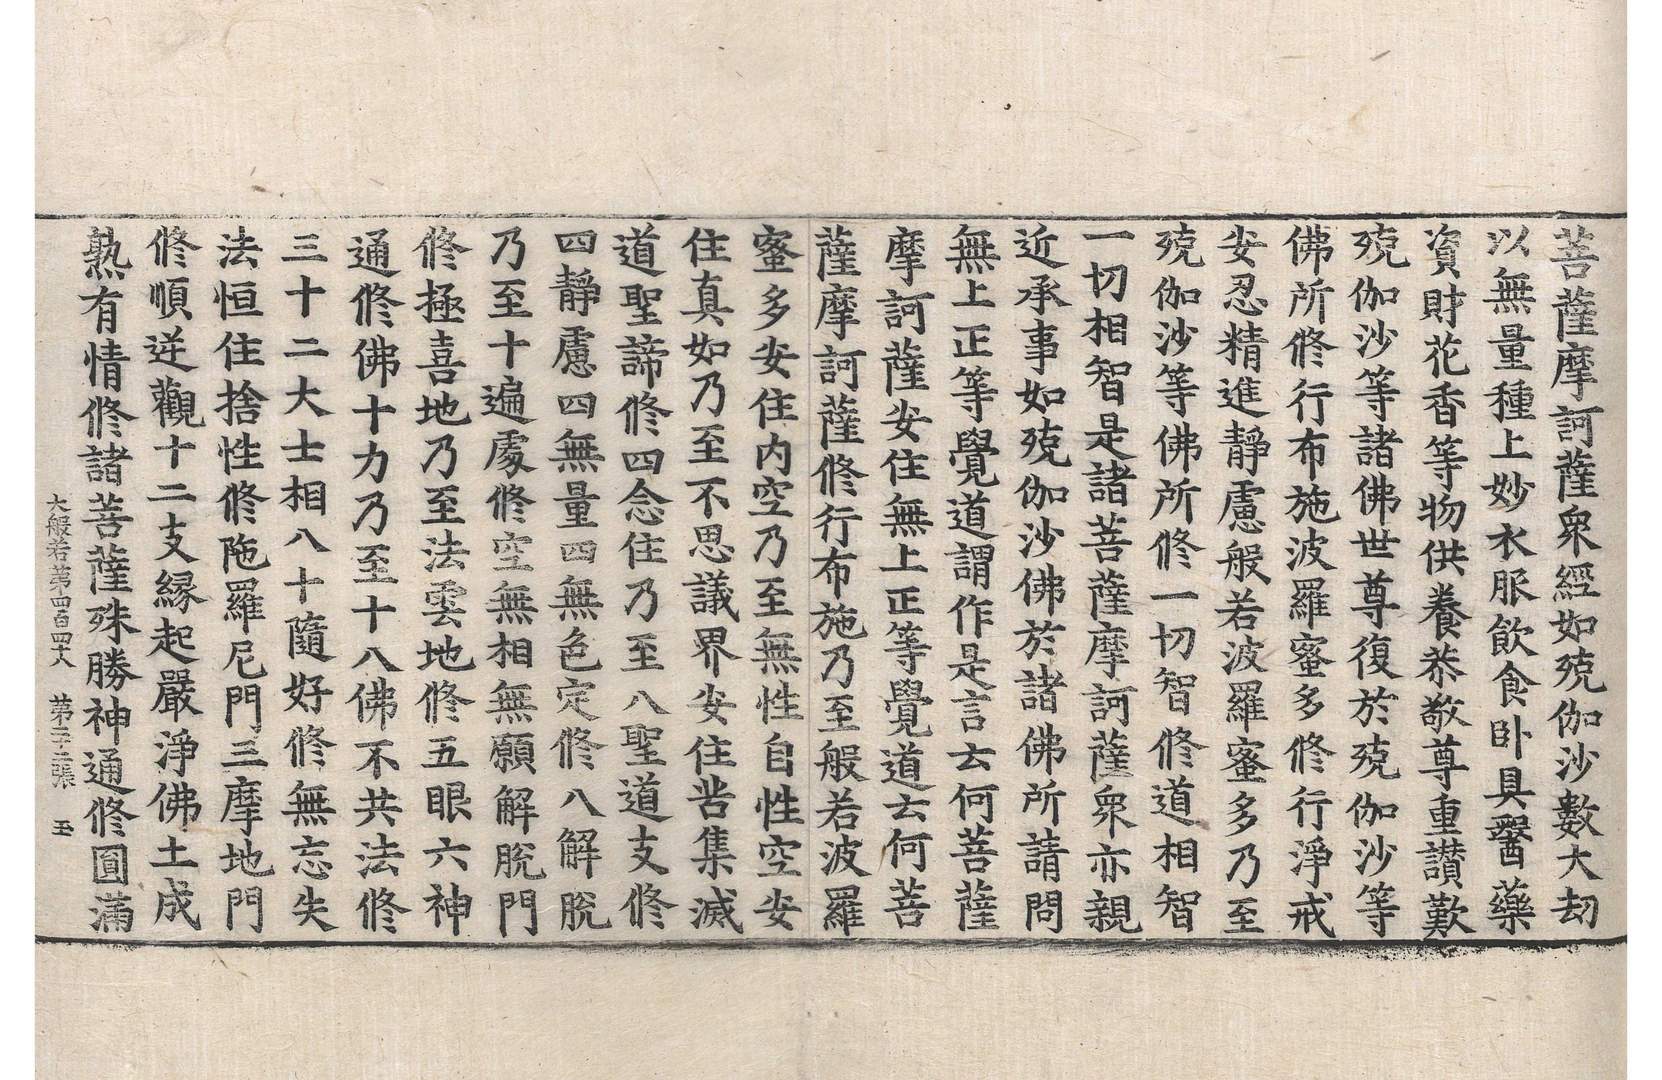 菩薩摩訶薩眾經如殑伽沙數大劫
以無量種上妙衣服飲食卧具醫藥
資財花香等物供養恭敬尊重讚歎
殑伽沙等諸佛世尊復於殑伽沙等
佛所修行布施波羅蜜多修行淨戒
安忍精進靜慮般若波羅蜜多乃至
殑伽沙等佛所修一切智修道相智
一切相智是諸菩薩摩訶薩眾亦親
近承事如殑伽沙佛於諸佛所請問
無上正等覺道謂作是言云何菩薩
摩訶薩安住無上正等覺道云何菩
薩摩訶薩修行布施乃至般若波羅
蜜多安住內空乃至無性自性空安
住真如乃至不思議界安住苦集滅
道聖諦修四念住乃至八聖道支修
四靜慮四無量四無色定修八解脫
乃至十遍處修空無相無願解脫門
修極喜地乃至法雲地修五眼六神
通修佛十力乃至十八佛不共法修
三十二大士相八十隨好修無忘失
法恒住捨性修陁羅尼門三摩地門
修順逆觀十二支緣起嚴淨佛土成
熟有情修諸菩薩殊勝神通修圓滿
大般若第四百四十八　第二十二張　玉